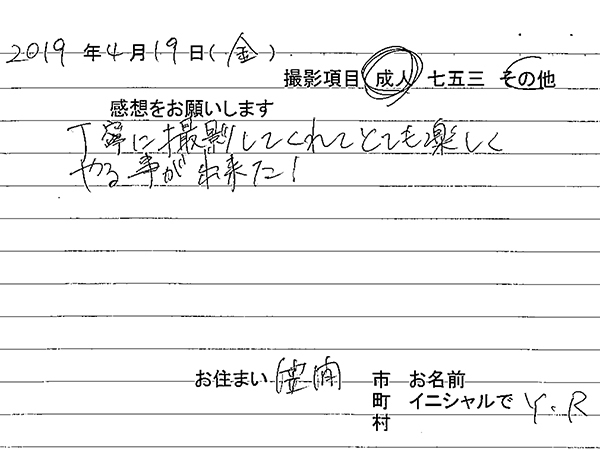 2019年4月19日(金)
撮影項目 成人 七五三 その他
感想をお願いします
丁寧に撮影してくれてとても楽しく
やる事が出来た!
お住まい 市 お名前
町 イニシャルで Y.R
村